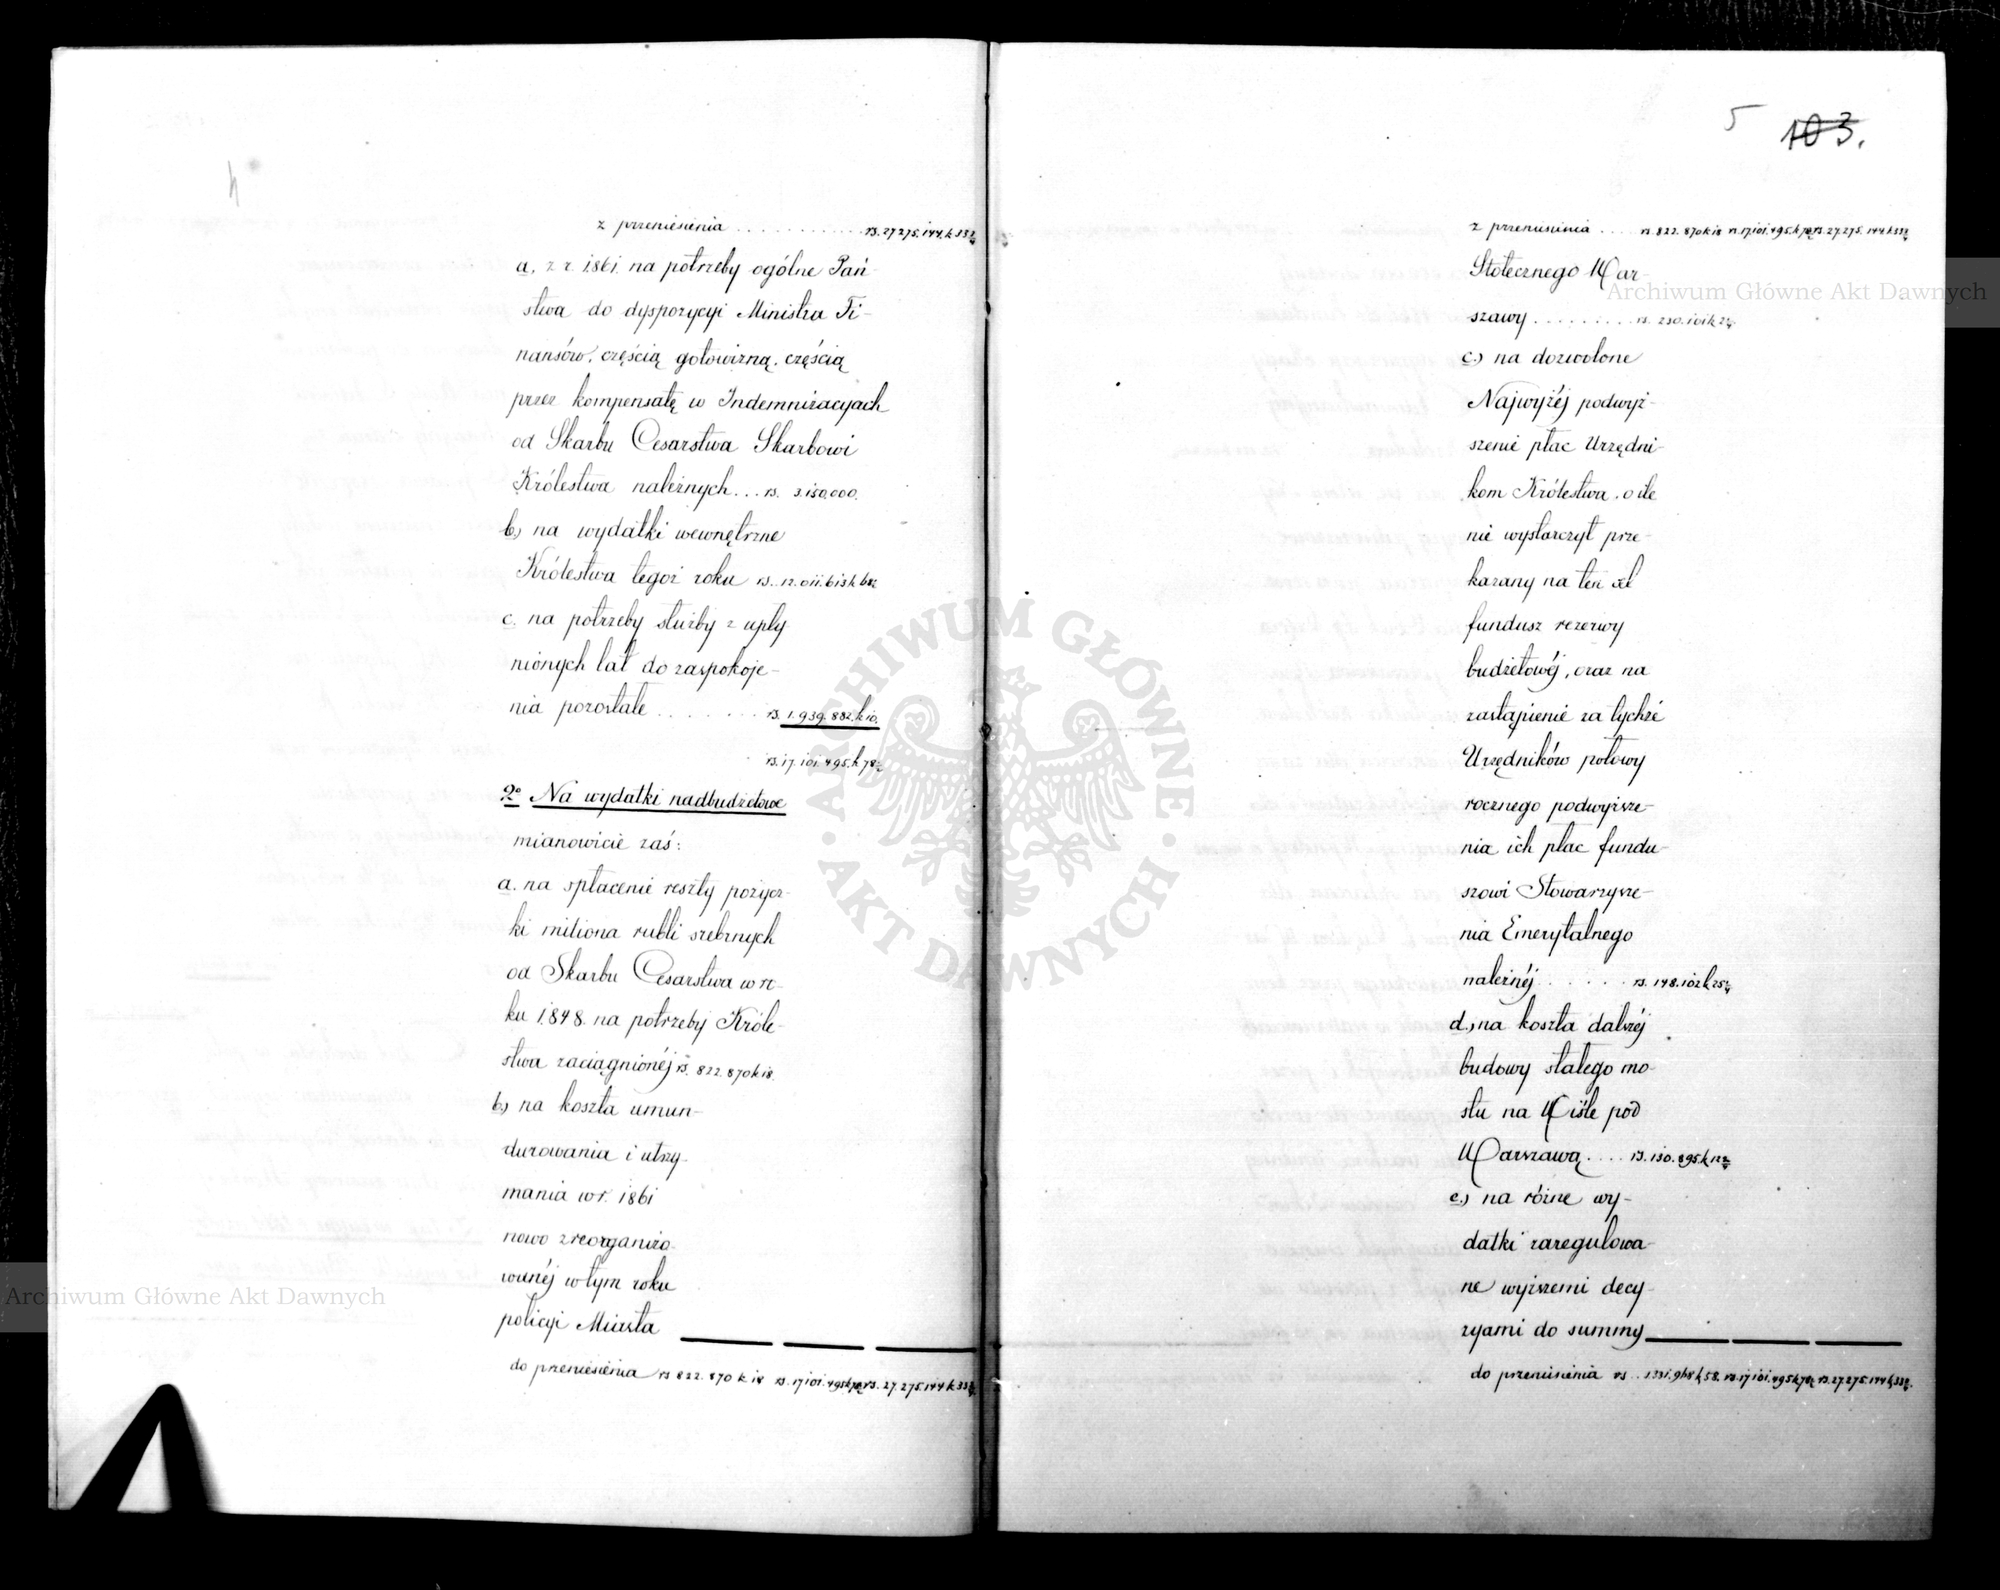 4
z przeniesienia . . . . . . . . . . . . rs. 27.275.144. k 33½
a. z r. 1861. na potrzeby ogólne Pań-
stwa do dyspozycyi Ministra Fi-
nansów, częścią gotowizną, częścią
przez kompensatę w Indemnizacyjach
od Skarbu Cesarstwa Skarbowi
Królestwa należnych . . . rs. 3.150.000.
b.) na wydatki wewnętrzne
Królestwa tegoż roku rs. 12.011.613 k 68½
c. na potrzeby służby z upły-
nionych lat do zaspokoje-
nia pozostałe . . . . . . . rs. 1.939.882. k 10.
rs. 17.101.495. k 78½
2o Na wydatki nadbudżetowe
mianowicie zaś:
a. na spłacenie reszty pożycz-
ki miliona rubli srebrnych
od Skarbu Cesarstwa w ro-
ku 1848. na potrzeby Króle-
stwa zaciągnionéj rs. 822.870 k 18.
b.) na koszta umun-
durowania i utrzy-
mania w r. 1861
nowo zreorganizo-
wanéj w tym roku
policyi Miasta
do przeniesienia rs 822.870 k 18 rs. 17.101.495 k 78½ rs. 27.275.144 k 33½
5 103.
z przeniesienia . . . . rs. 822.870 k 18 rs. 17.101.495. k 78½ rs. 27.275.144. k 33½
Stołecznego War-
szawy . . . . . . . . . rs. 230.101 k 2¼
c.) na dozwolone
Najwyżéj podwyż-
szenie płac Urzędni-
kom Królestwa, o ile
nie wystarczył prze-
kazany na ten cel
fundusz rezerwy
budżetowéj, oraz na
zastąpienie za tychże
Urzędników połowy
rocznego podwyższe-
nia ich płac fundu-
szowi Stowarzysze-
nia Emerytalnego
należnéj . . . . . . rs. 148.102 k 25¼
d.) na koszta dalszéj
budowy stałego mo-
stu na Wiśle pod
Warszawą . . . . rs. 130.895. k 12½
e.) na różne wy-
datki zaregulowa-
ne wyższemi decy-
zyami do summy
do przeniesienia rs . . 1.331.968 k 58. rs. 17.101.495 k 78½ rs. 27.275.144 k 33½.
Archiwum Główne Akt Dawnych
Archiwum Główne Akt Dawnych
ARCHIWUM GŁÓWNE
· AKT DAWNYCH ·